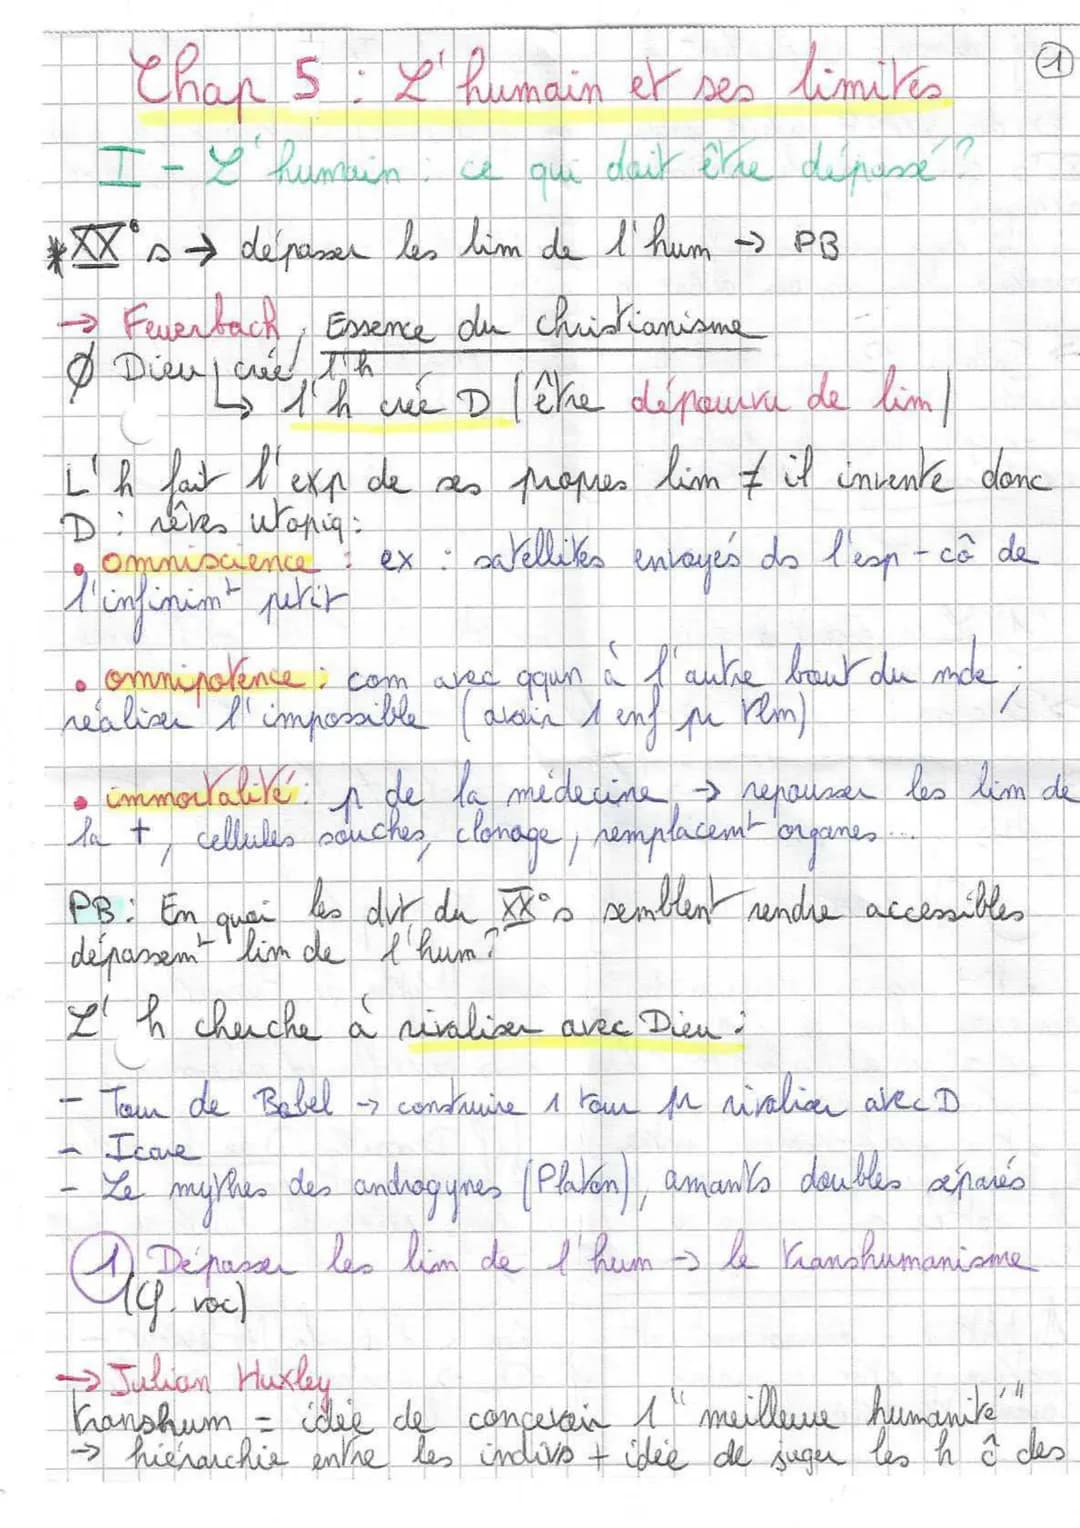 ①
Chap 5 : L'humain et ses limites
I - L'humain : ce qui doit être dépassé ?
* XX° s → dépasser les lim de l'hum → PB
→ Feuerbach, Essence du christianisme
Ø Dieu crée l'h
↳ l'h crée D (être dépourvu de lim)
L'h fait l'exp de ses propres lim ≠ il invente donc
D : rêves utopiq :
• omniscience : ex : satellites envoyés ds l'esp - cô de
l'infinimt petit
• omnipotence : com avec qqun à l'autre bout du mde ;
réaliser l'impossible (avoir 1 enf pr tlm)
• immortalité : p de la médecine → repousser les lim de
la +, cellules souches, clonage, remplacemt organes...
PB : En quoi les dvt du XX° s semblent rendre accessibles
dépassemt lim de l'hum ?
L'h cherche à rivaliser avec Dieu :
- Tour de Babel → construire 1 tour pr rivaliser avec D
- Icare
- Le mythes des androgynes (Platon), amants doubles séparés
① Dépasser les lim de l'hum → le transhumanisme
(cf. voc)
→ Julian Huxley
transhum = idée de concevoir 1 "meilleure humanité"
→ hiérarchie entre les indivs + idée de juger les h ê des